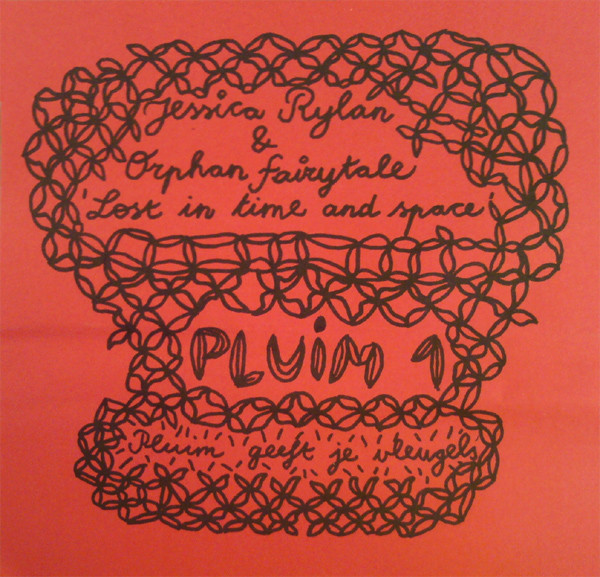 Jessica Rylan
&
Orphan fairytale
'Lost in time and space'
PLUiM 1
Pluim geeft je vleugels